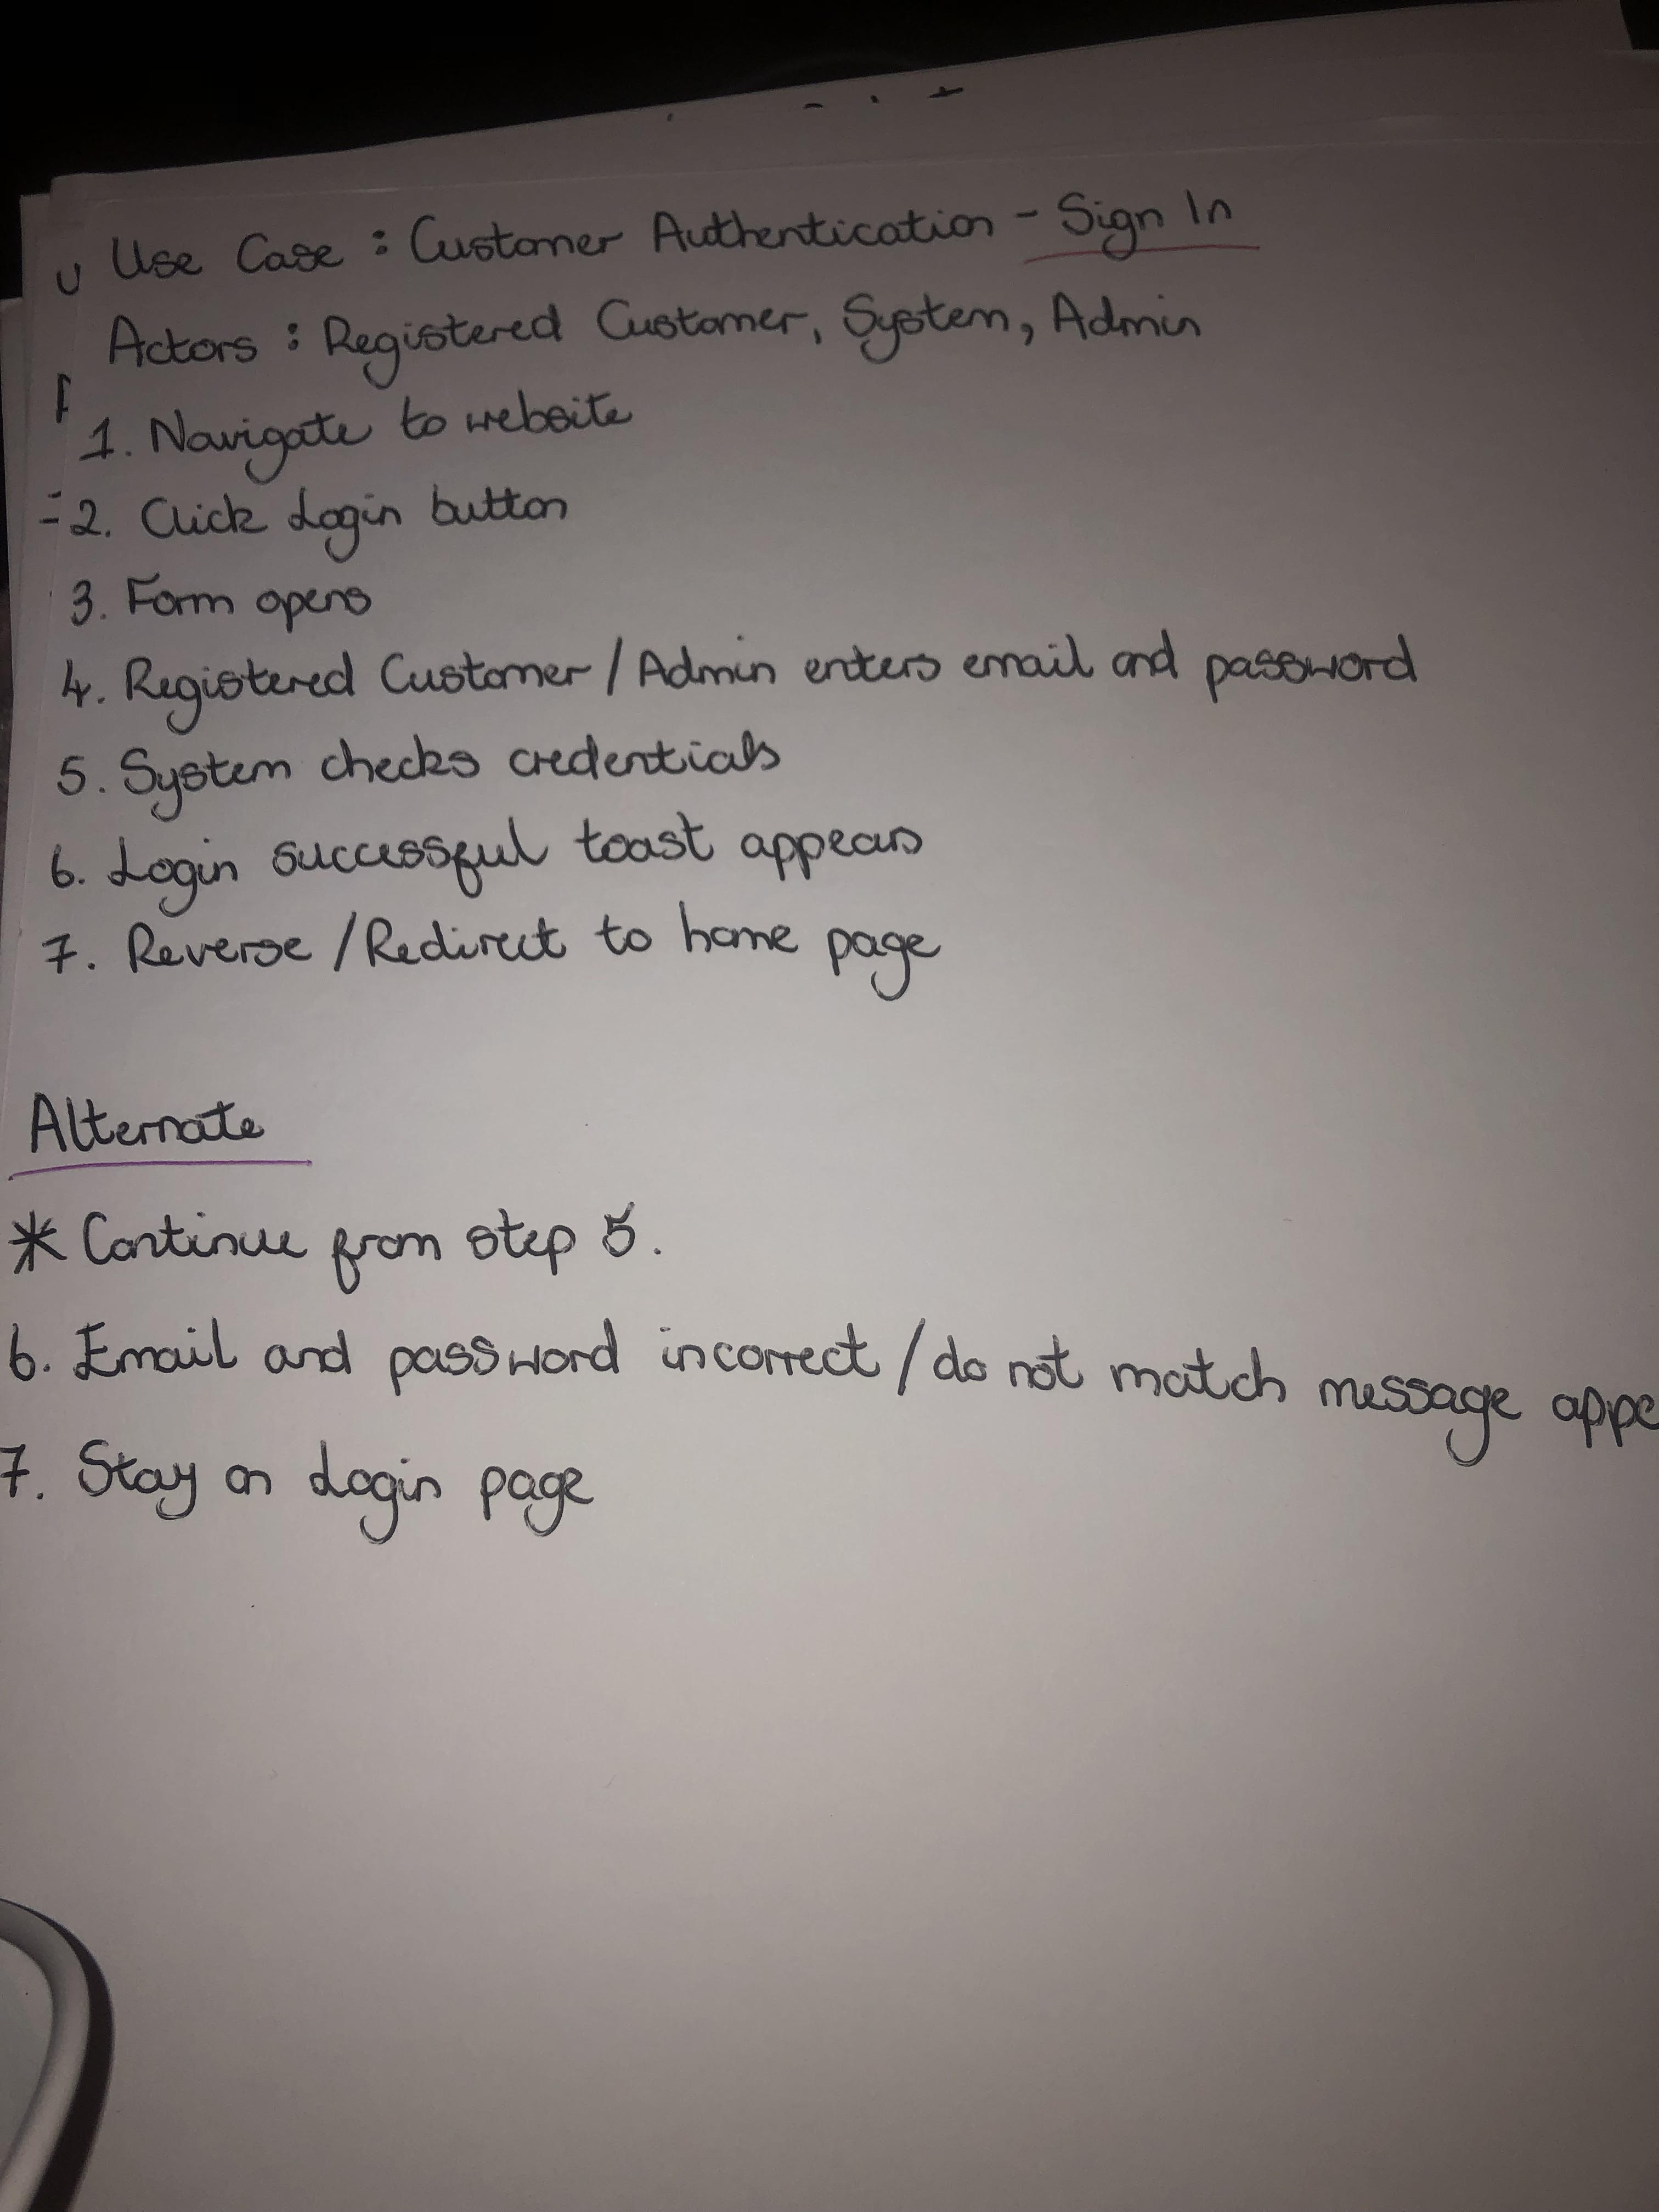 Use Case : Customer Authentication - Sign In
Actors : Registered Customer, System, Admin
1. Navigate to website
2. Click Login button
3. Form opens
4. Registered Customer / Admin enters email and password
5. System checks credentials
6. Login successful toast appears
7. Reverse / Redirect to home page
Alternate
* Continue from step 5.
6. Email and password incorrect / do not match message
7. Stay on Login page